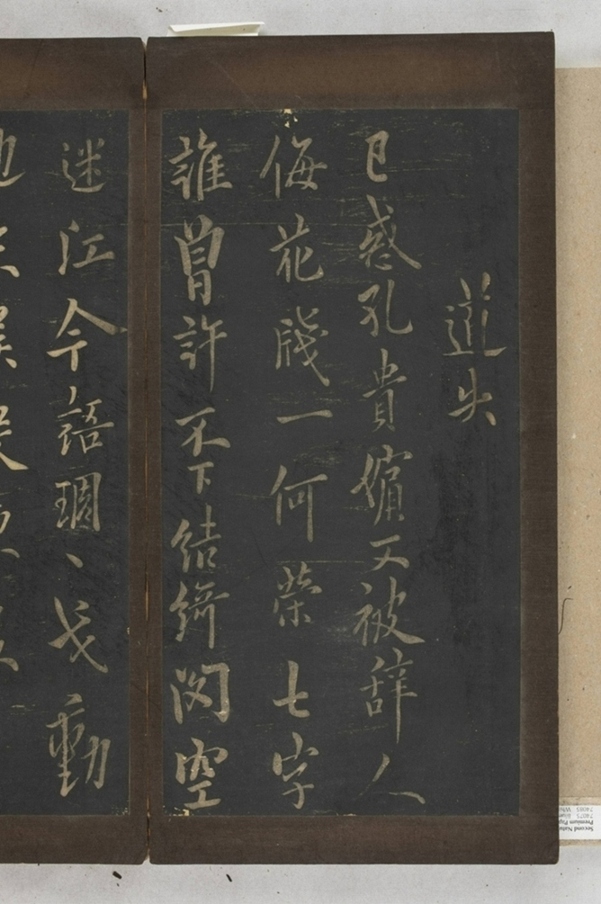 道失
已惑孔貴嬪又被辞人
侮花牋一何榮七字
誰曾許不下結綺閣空
迷江令語琱戈動